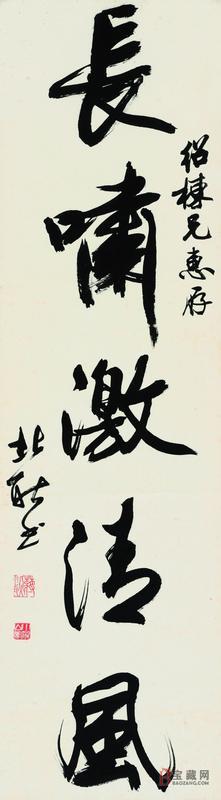 長嘯激清風
紹棟兄惠存
书
宝藏网
BAOZANG.COM